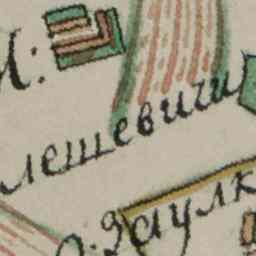 И:
лешевичи
О. Заулк